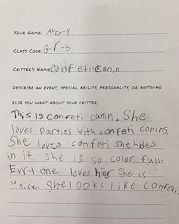 YOUR NAME: Avery
CLASS CODE:
CRITTER'S NAME: Confeti Canin
DESCRIBE AN EVENT, SPECIAL ABILITY, PERSONALITY, OR ANYTHING
ELSE YOU WANT ABOUT YOUR CRITTER.
This is confeti canin. She
loves parties with confeti canins.
She loves confeti she hides
in it. She is so color full-
Evry one loves her she is
nice. She looks like confeti.